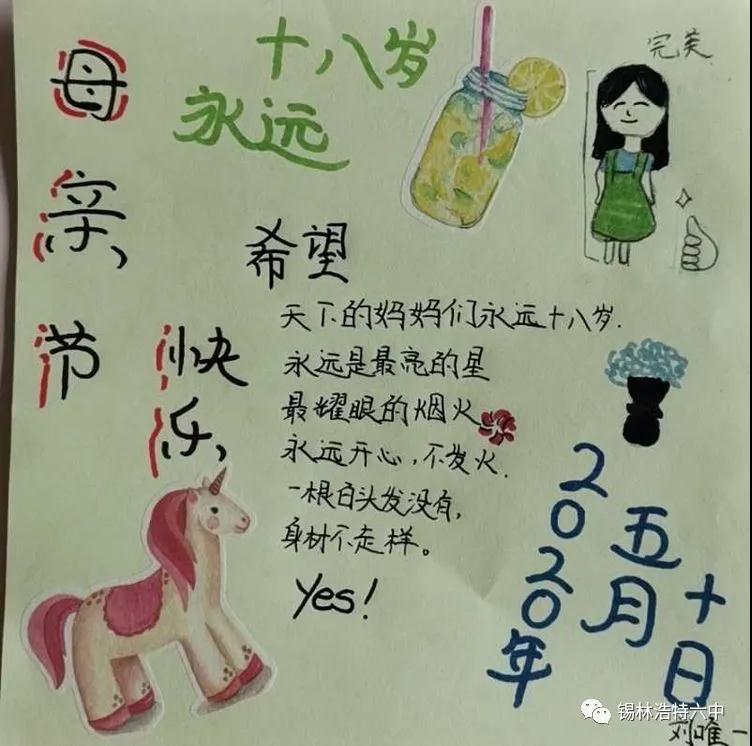 母亲节
快乐
十八岁
永远
完美
希望
天下的妈妈们永远十八岁.
永远是最亮的星
最耀眼的烟火
永远开心,不发火.
一根白头发没有,
身材不走样。
Yes!
2020年
五月
十日
锡林浩特六中
刘唯一